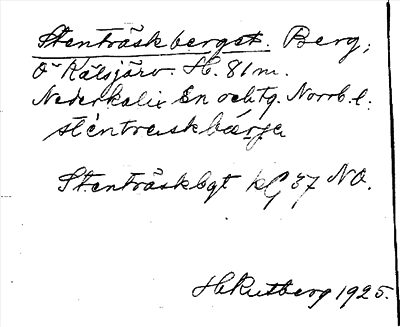 Stenträskbergst. Berg;
Ö Kälsjärv. H. 81 m.
Nederkalix Sn och Tg. Norrb. l.
sténtraskbærje
Stenträskbgt kG 37 NO.
H. Rutberg 1925.